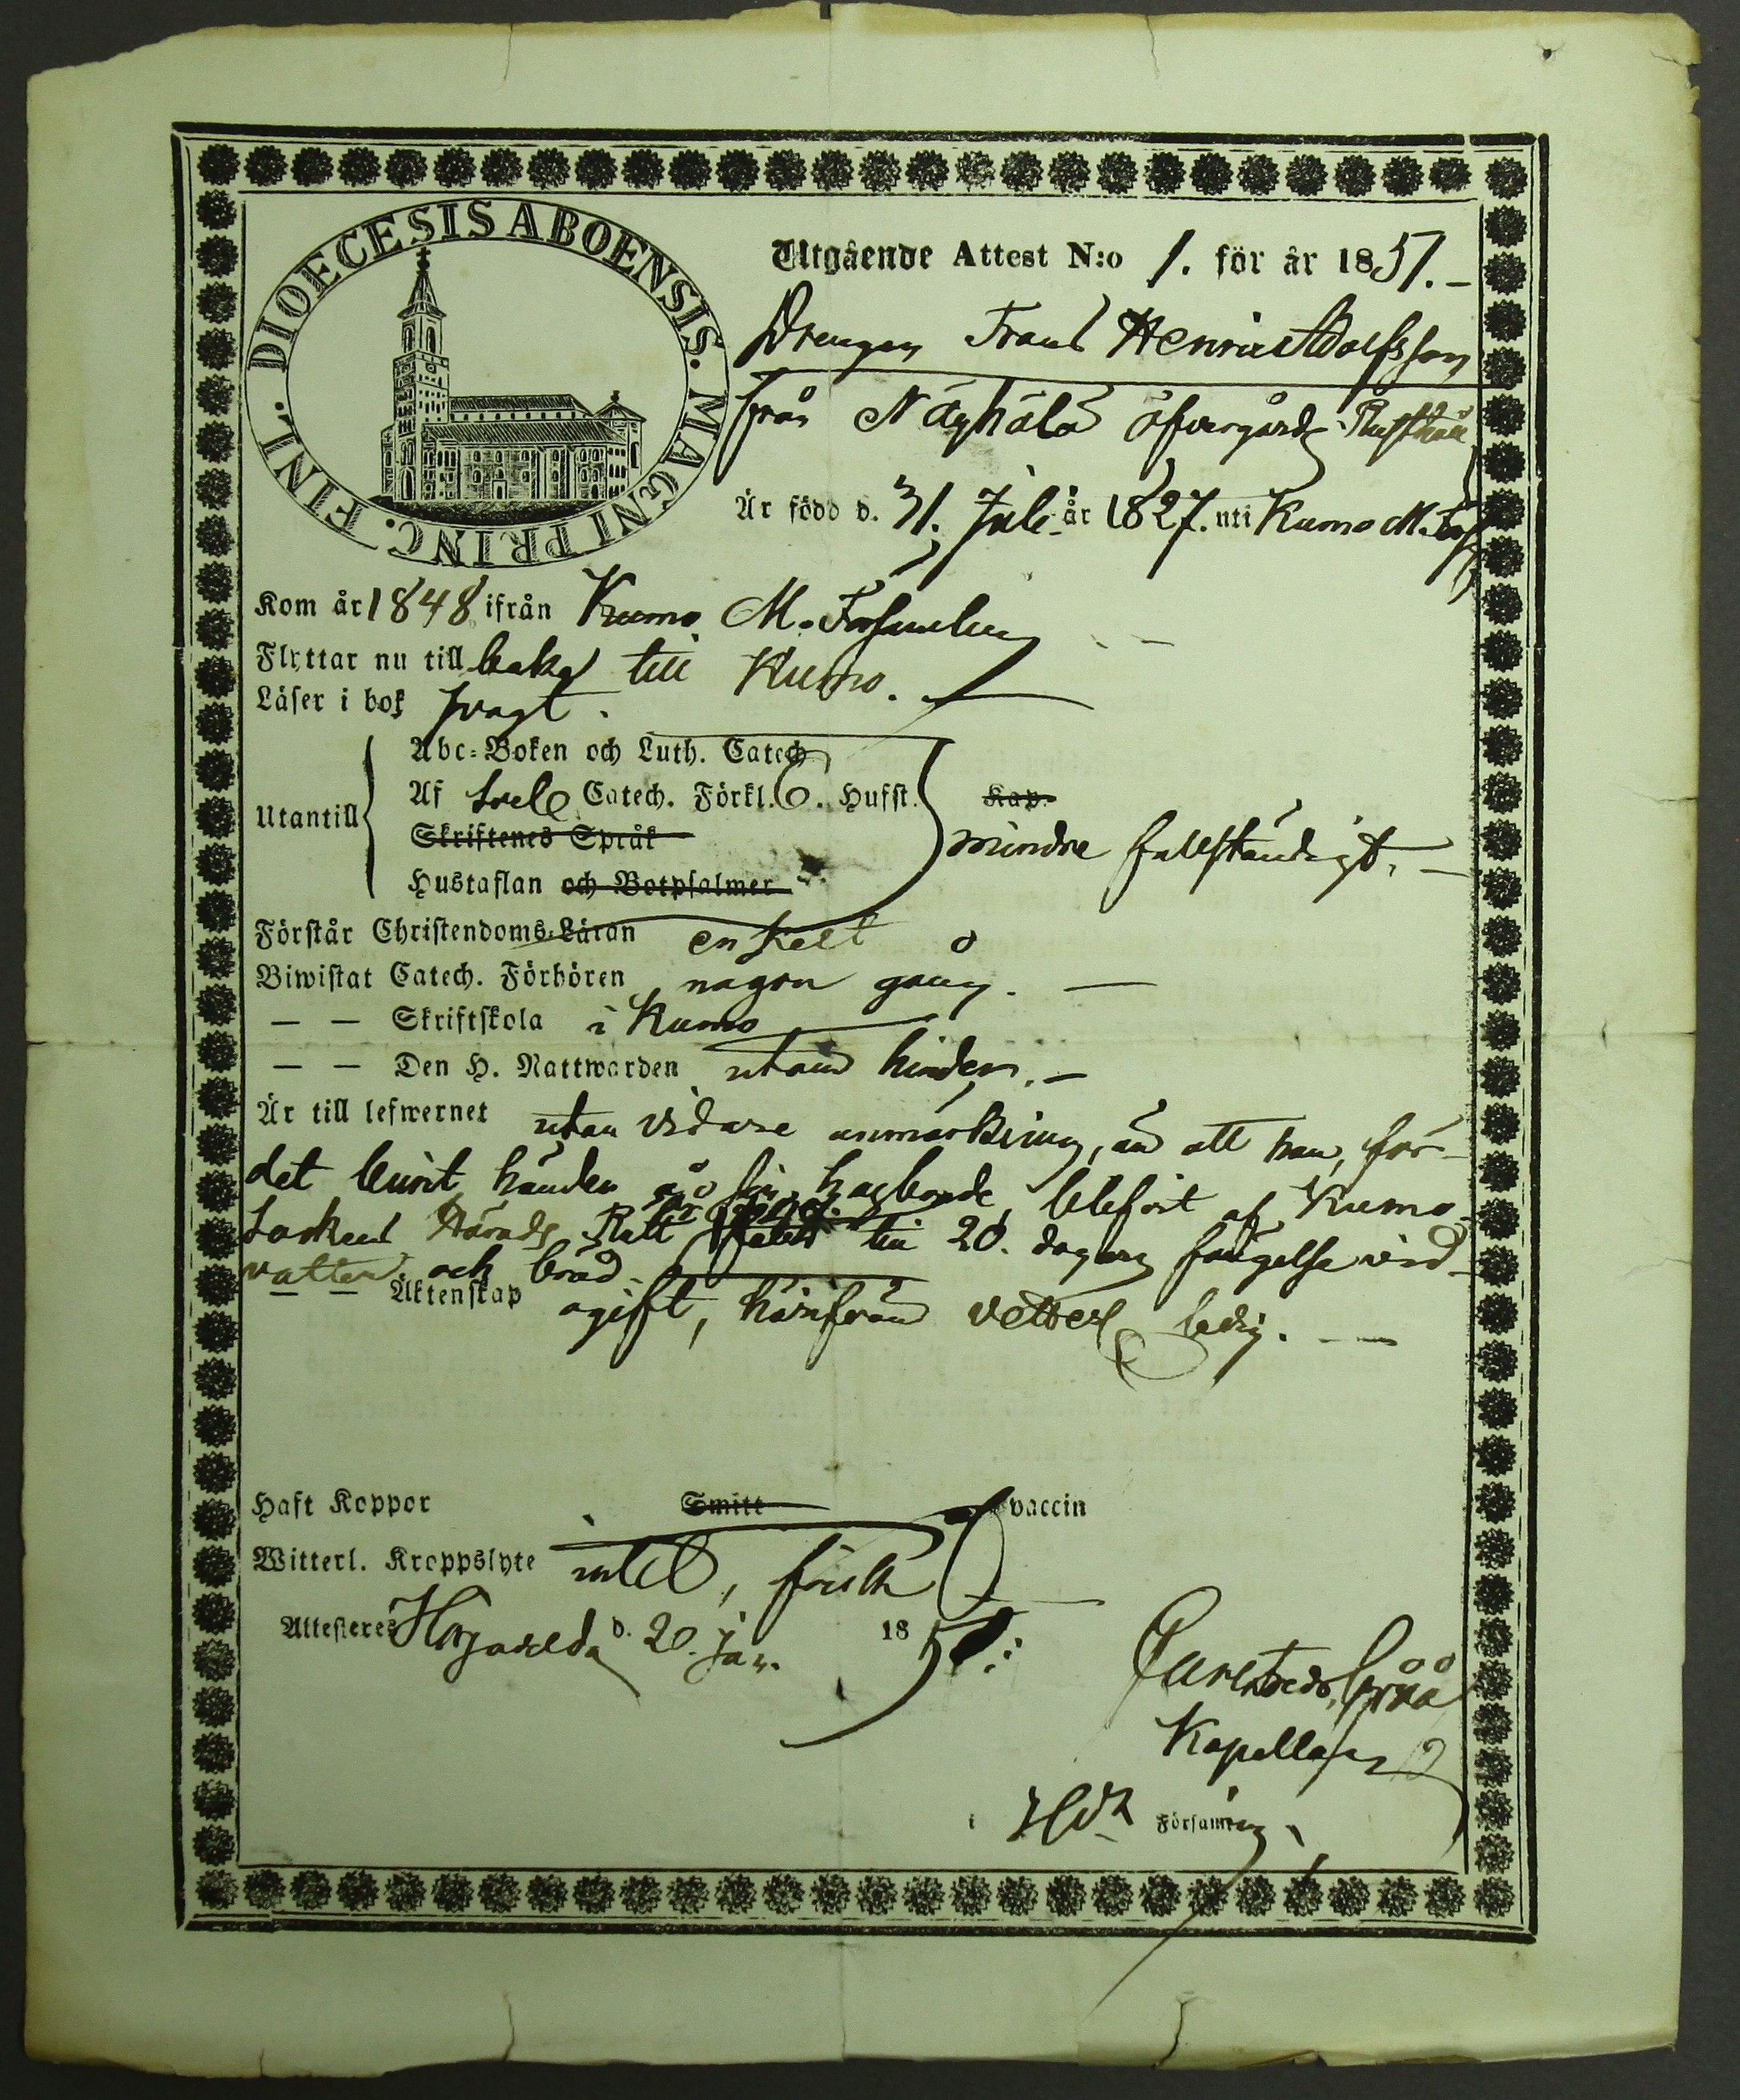 DIOECESIS ABOENSIS. MAGNI PRINC. FINL.
Utgående Attest N:o 1. för år 1851.
Drengen Frans Henric Adolfsson
från Näyhälä öfvergårds Rusthåll
Är född d. 31. Juli år 1827. uti Kumo M.
Kom år 1848 ifrån Kumo M. Församling
Flyttar nu till baka till Kumo.
Läser i bok svagt.
Abc-Boken och Luth. Catech
Utantill Af Catech. Förkl. Husst. Kap.
Skriftenes Språk
mindre fullständigt.
Hustaflan och Botpsalmer
Förstår Christendoms-Läran enskelt
Biwistat Catech. Förhören någon gång.
— — Skriftskola i Kumo
— — Den H. Nattwarden utan hinder.
Är till lefwernet utan vidare anmärkning, än att han, för
det burit händer på sin husbonde, blefvit af Kumo
Sockens Härads Rätt till 20. dagars fängelse vid
vatten och bröd.
— — Äktenskap ogift, härifrån vetterl. ledig.
Haft Koppor Smitt vaccin
Witterl. Kroppslyte intet, frisk
Attesteres d. 20. Jan. 1851.
Kapellan
i Församling